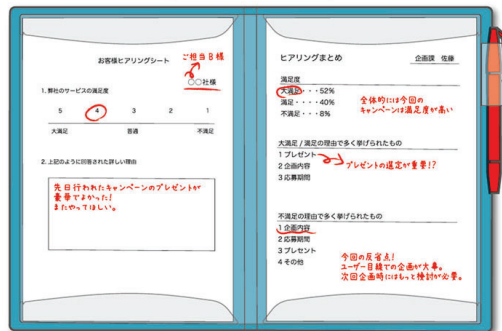 お客様ヒアリングシート
ご担当B様
○○社様
1. 弊社のサービスの満足度
5 4 3 2 1
大満足 普通 不満足
2. 上記のように回答された詳しい理由
先日行われたキャンペーンのプレゼントが
豪華でよかった！
またやってほしい。
ヒアリングまとめ
企画課 佐藤
満足度
大満足・・・52%
満足・・・・40%
不満足・・・8%
全体的には今回の
キャンペーンは満足度が高い
大満足 / 満足の理由で多く挙げられたもの
1 プレゼント
2 企画内容
3 応募期間
プレゼントの選定が重要!?
不満足の理由で多く挙げられたもの
1 企画内容
2 応募期間
3 プレゼント
4 その他
今回の反省点！
ユーザー目線での企画が大事。
次回企画時にはもっと検討が必要。